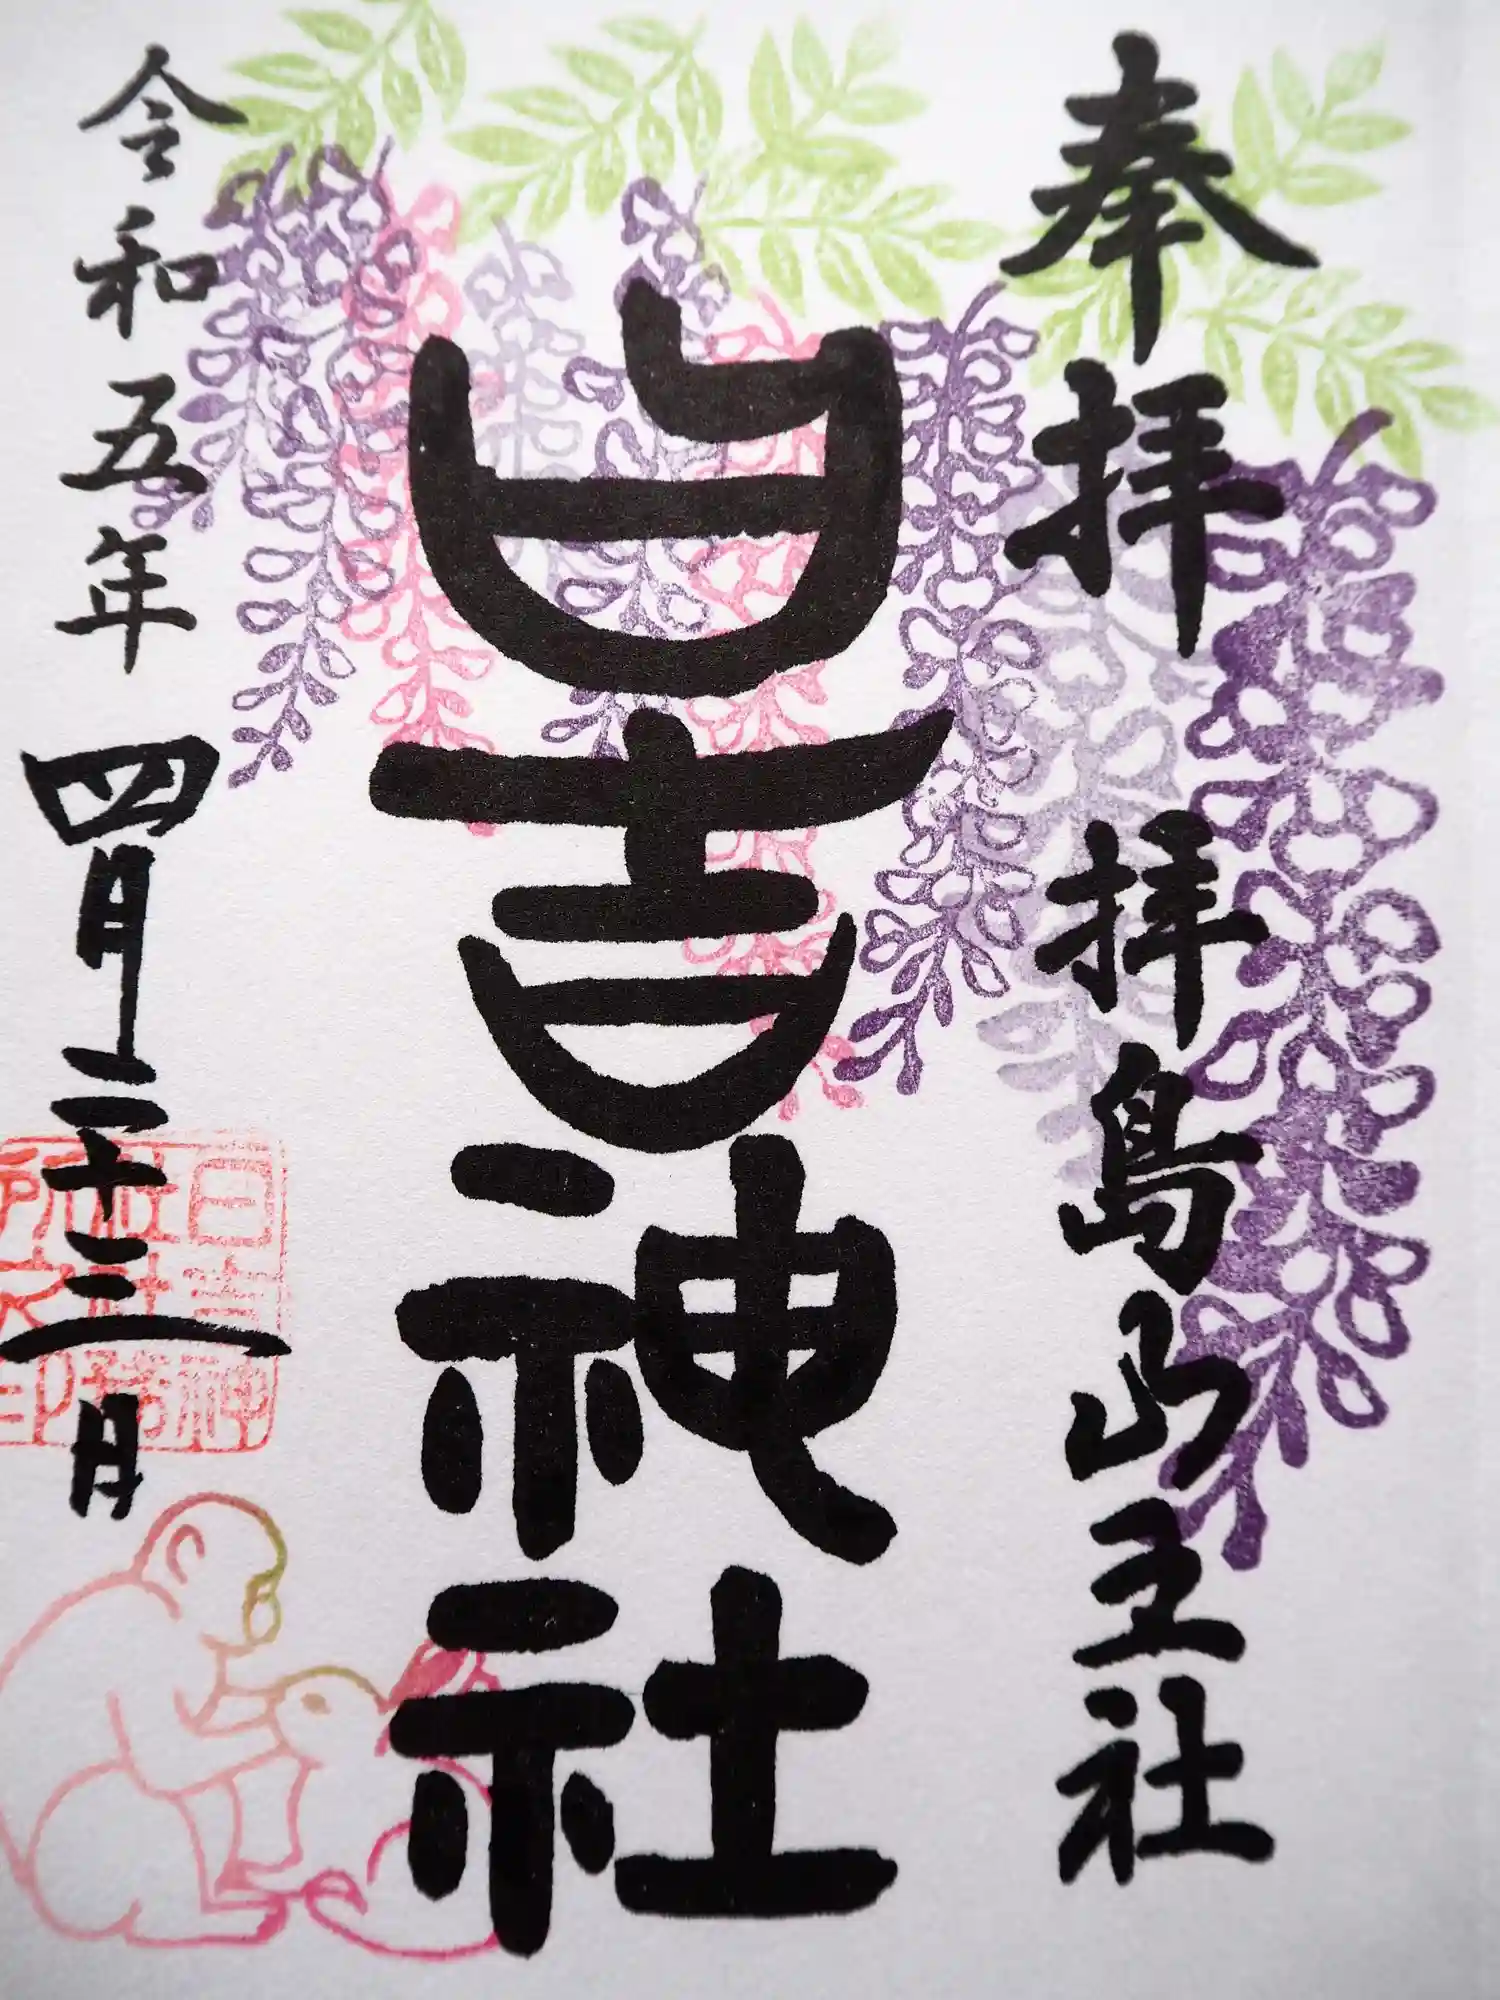 奉拝 拝島山王社
日吉神社
令和五年四月二十三日
日吉神
社社務
所之印